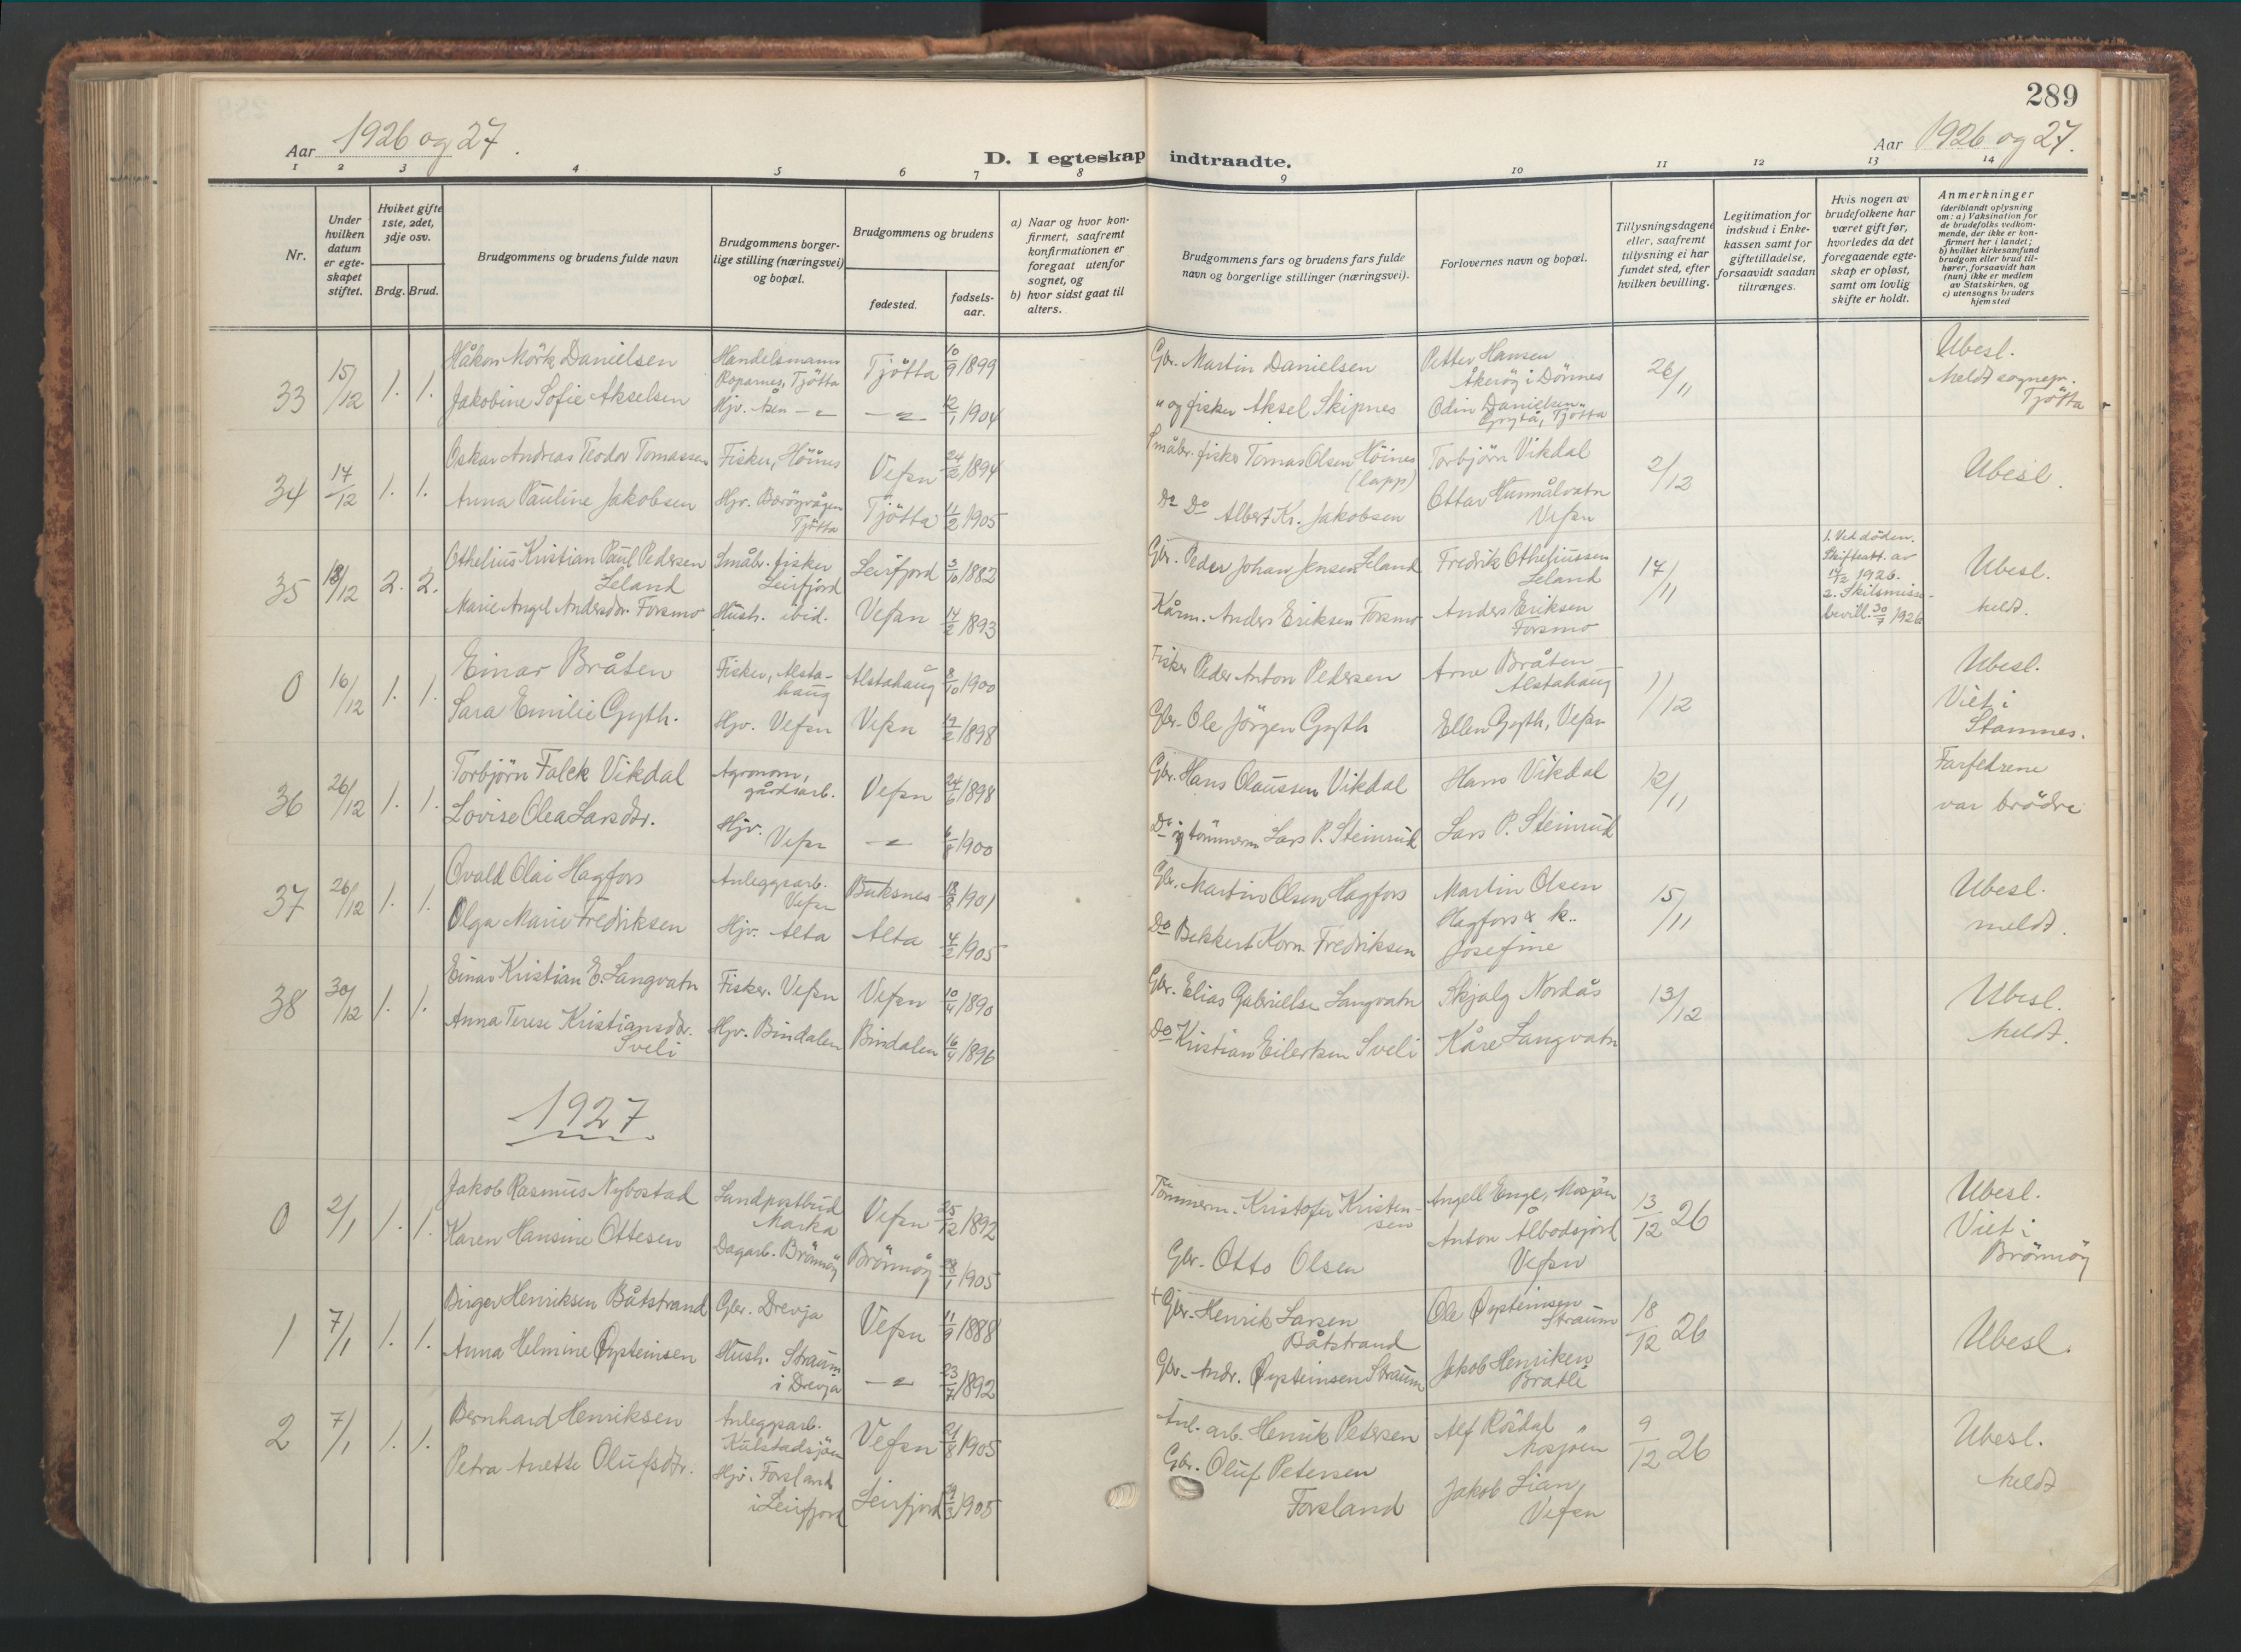 289
Aar 1926 og 27.
D. I egteskap indtraadte.
Aar 1926 og 27.
1 2 3 4 5 6 7 8 9 10 11 12 13 14
Nr.
Under hvilken datum er egteskapet stiftet.
Hviket gifte 1ste, 2det, 3dje osv.
Brdg. Brud.
Brudgommens og brudens fulde navn
Brudgommens borgerlige stilling (næringsvei) og bopæl.
Brudgommens og brudens
fødested.
fødselsaar.
a) Naar og hvor konfirmert, saafremt konfirmationen er foregaat utenfor sognet, og
b) hvor sidst gaat til alters.
Brudgommens fars og brudens fars fulde navn og borgerlige stillinger (næringsvei).
Forlovernes navn og bopæl.
Tillysningsdagene eller, saafremt tillysning ei har fundet sted, efter hvilken bevilling.
Legitimation for indskud i Enkekassen samt for giftetilladelse, forsaavidt saadan tiltrænges.
Hvis nogen av brudefolkene har været gift før, hvorledes da det foregaaende egteskap er opløst, samt om lovlig skifte er holdt.
Anmerkninger
(deriblandt oplysning om: a) Vaksination for de brudefolks vedkommende, der ikke er konfirmert her i landet; b) hvilket kirkesamfund brudgom eller brud tilhører, forsaavidt han (hun) ikke er medlem av Statskirken, og c) utensogns bruders hjemsted
33 15/12 1. 1.
Håkon Mörk Danielsen Handelsmann Roparnes, Tjötta Tjötta 10/9 1899 Gbr. Martin Danielsen Petter Hansen Åkeröy i Dönnes 26/11 Ubesl. Meldt sognepr. Tjötta
Jakobine Sofie Akselsen Hjv. 12/1 1904 " og fisker Aksel Skipnes Odin Danielsen Tjötta
34 17/12 1. 1.
Oskar Andreas Teodor Tomassen Fisker, Höines Vefsn 24/2 1894 Småbr. fisker Tomas Olsen Höines (lapp) Torbjörn Vikdal 2/12 Ubesl.
Anna Pauline Jakobsen Hjv. Boröyvågen Tjötta Tjötta 11/2 1905 Do Do Albert Kr. Jakobsen Ottar Hunnålvatn Vefsn
35 18/12 2. 2.
Othelius Kristian Paul Pedersen Leland Småbr. fisker Leirfjord Leirfjord 3/10 1882 Gbr. Peder Johan Jensen Leland Fredrik Otheliussen Leland 17/11 1. Ved döden. Skifteatt. av 1926. Ubesl. Meldt.
Marie Angel Andersdr. Forsmo Hush. ibid. Vefsn 14/2 1893 Kårm. Anders Eriksen Forsmo Anders Eriksen Forsmo 2. Skilsmissebevill. 30/7 1926
0 16/12 1. 1.
Einar Bråten Fisker, Alstahaug Alstahaug 8/10 1900 Fisker Peder Anton Pedersen Arne Bråten Alstahaug 11/12 Ubesl. Viet i Stamnes.
Sara Emilie Gyth. Hjv. Vefsn Vefsn 1898 Gbr. Ole Jörgen Gyth Ellen Gyth, Vefsn
36 26/12 1. 1.
Torbjörn Falck Vikdal Agronom, gårdsarb. Vefsn 24/6 1898 Gbr. Hans Olaussen Vikdal Hans Vikdal 12/11 Farfedrene var brödre
Lovise Olea Larsdtr. Hjv. Vefsn 6/8 1900 Do og tömmerm Lars P. Steinrud Lars P. Steinrud
37 26/12 1. 1.
Ovald Olai Hagfors Anleggsarb. Vefsn Buksnes 18/8 1901 Gbr. Martin Olsen Hagfors Martin Olsen Hagfors & k. Josefine 15/11 Ubesl. meldt.
Olga Marie Fredriksen Hjv. Alta Alta 4/2 1905 Do Bekkert Korn. Fredriksen
38 30/12 1. 1.
Einar Kristian E. Langvatn Fisker. Vefsn Vefsn 10/4 1890 Gbr. Elias Gabrielsen Langvatn Skjalg Nordås 13/12 Ubesl. Meldt.
Anna Terese Kristiansdr. Sveli Hjv. Bindalen Bindalen 16/4 1896 Do Kristian Eilertsen Sveli Kåre Langvatn
1927
0 2/1 1. 1.
Jakob Rasmus Nybostad Landpostbud Marka Vefsn 25/12 1892 Tömmerm. Kristofer Kristensen Angell Enge, Mosjön 13/12 26 Ubesl. Viet i Brönnöy
Karen Hansine Ottesen Dagarb. Brönnöy Brönnöy 28/1 1905 Gbr. Otto Olsen Anton Ålbodsjord Vefsn
1 7/1 1. 1.
Birger Henriksen Båtstrand Gbr. Drevja Vefsn 11/9 1888 + Gbr. Henrik Larsen Båtstrand Ole Øysteinsen Straum 18/12 26 Ubesl.
Anna Helmine Øysteinsen Hush. Straum i Drevja 23/7 1892 Gbr. Andr. Øysteinsen Straum Jakob Henriken Bratli
2 7/1 1. 1.
Bernhard Henriksen Anleggsarb. Kulstadsjöen Vefsn 21/8 1905 Anl. arb. Henrik Petersen Alf Rösdal Mosjöen 9/12 26 Ubesl. Meldt
Petra Anette Olufsdtr. Hjv. Forsland i Leirfjord Leirfjord 1905 Gbr. Oluf Petersen Forsland Jakob Lian Vefsn